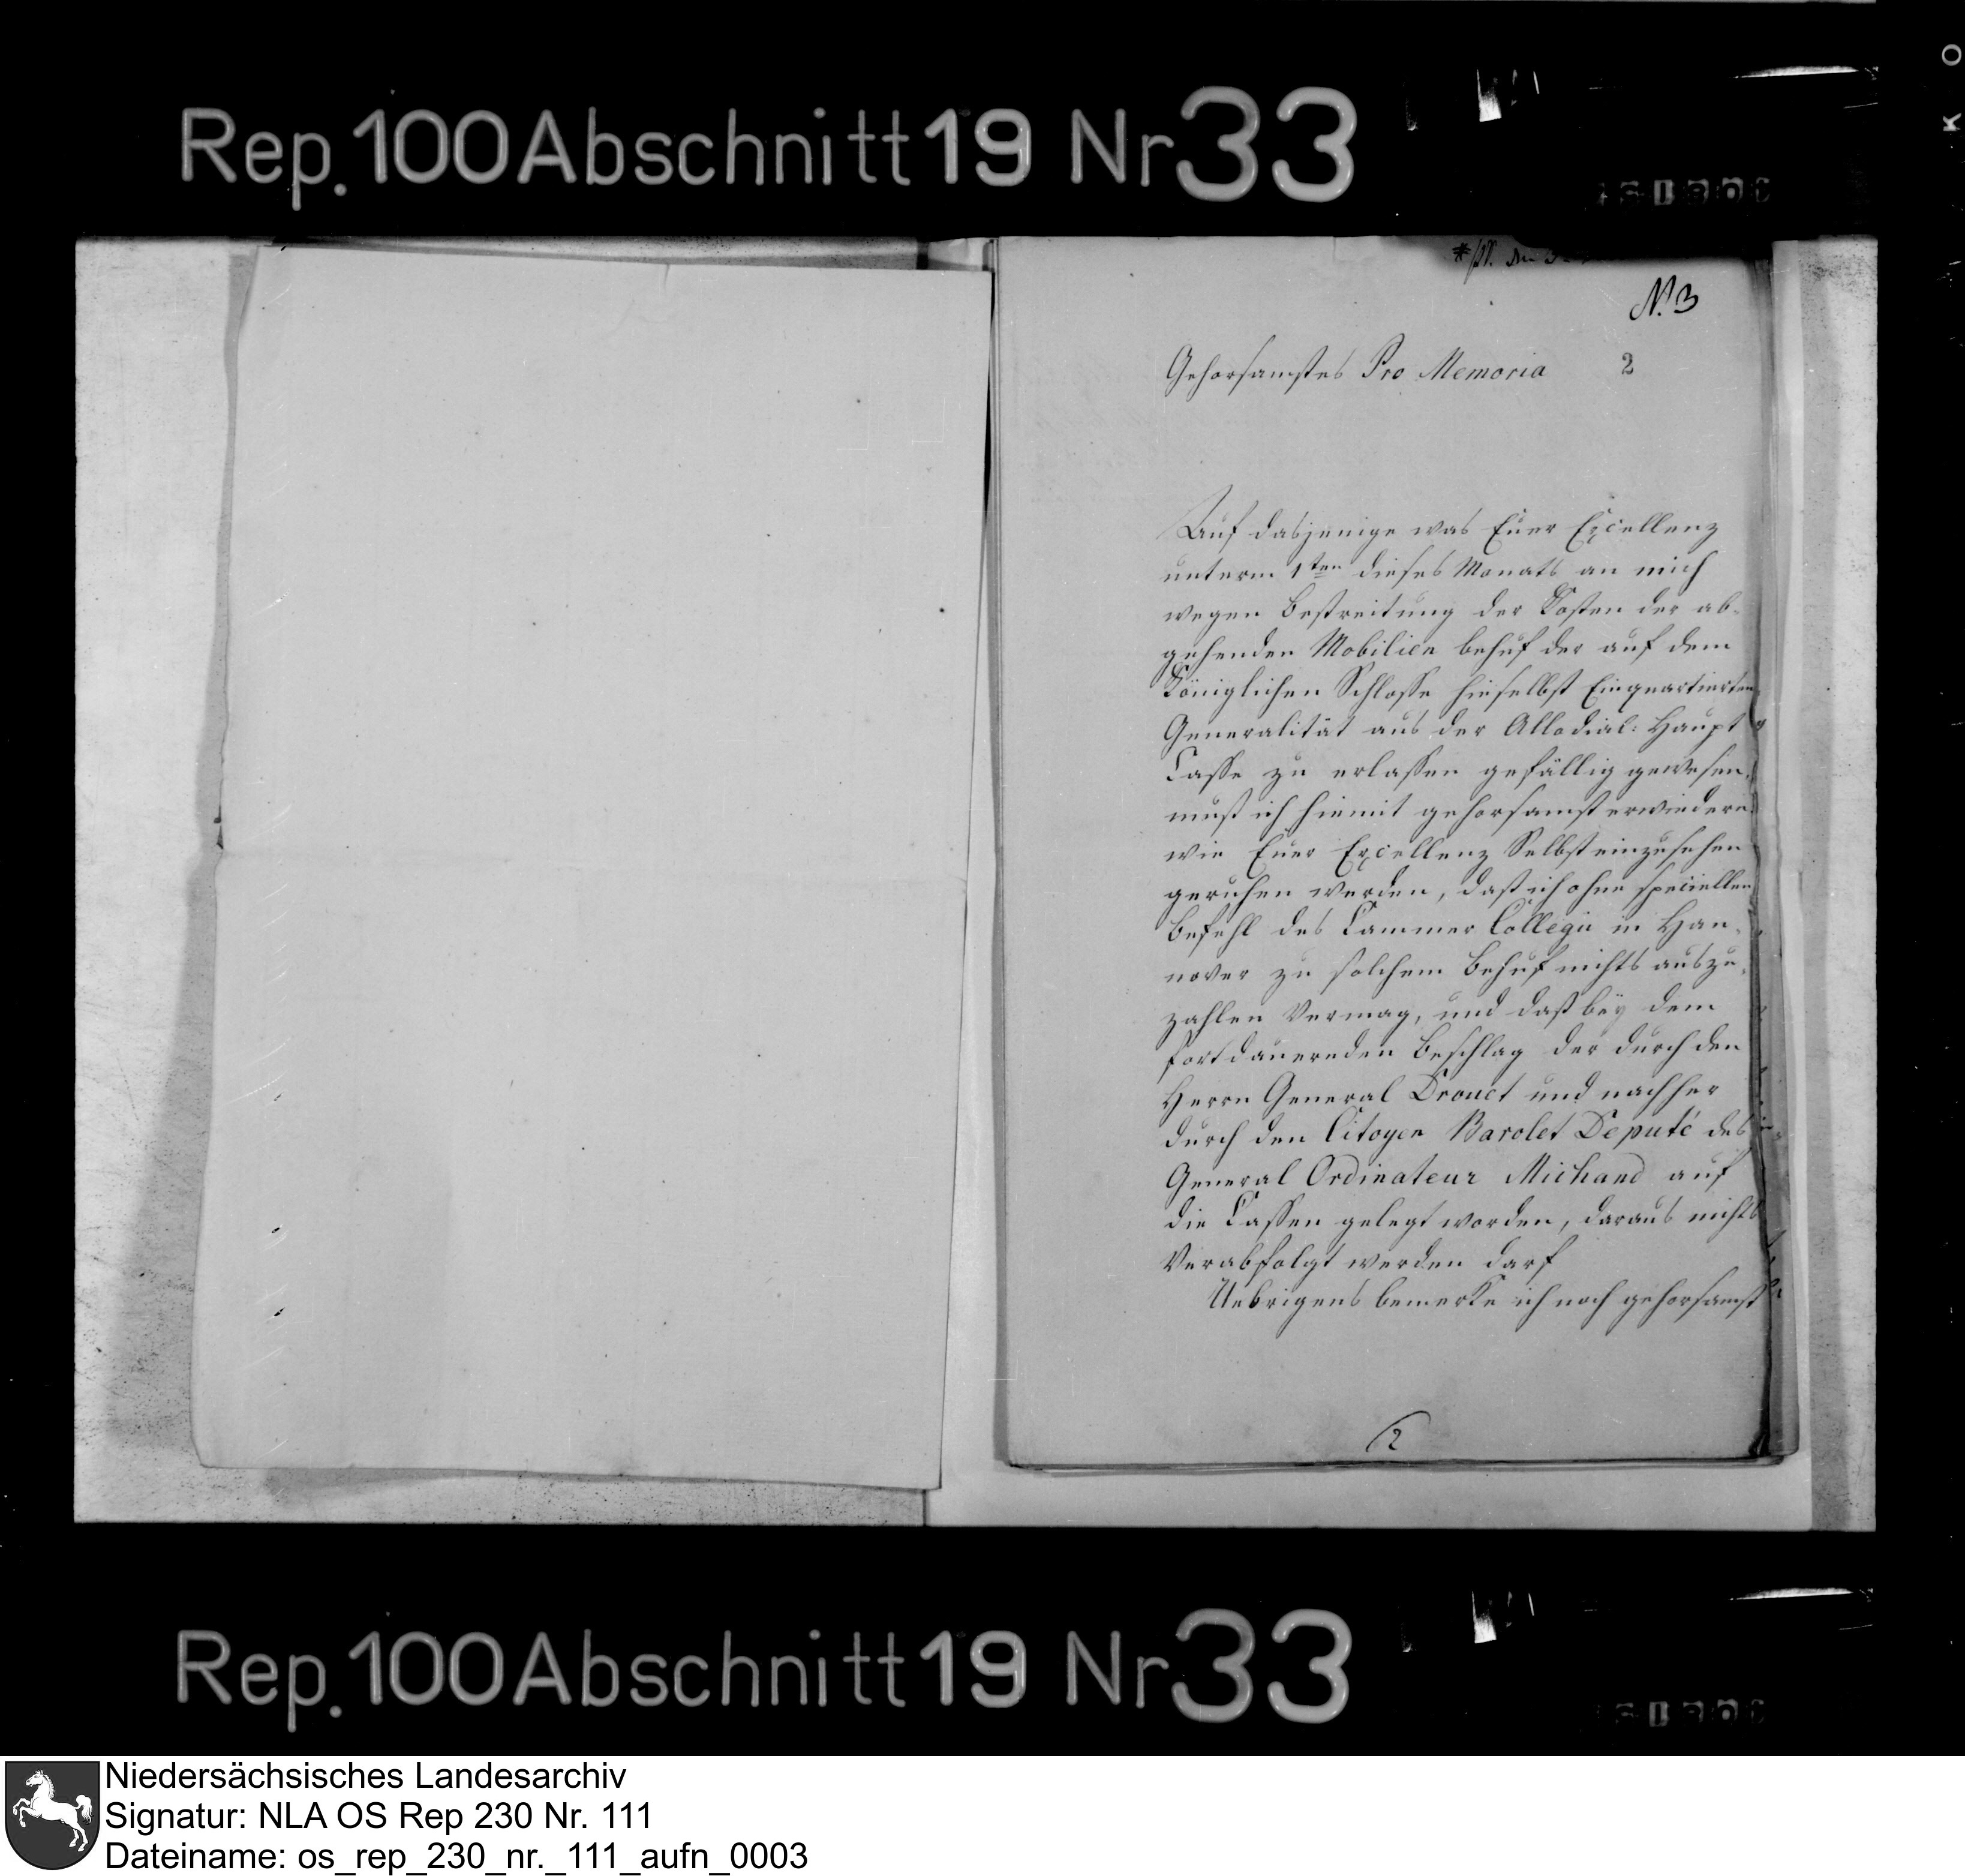 Rep. 100 Abschnitt 19 Nr 33
N. 3
Gehorsamstes Pro Memoria
2
Auf dasjenige was Euer Excellenz
unterm 1ten dieses Monats an mich
wegen Bestreitung der Kosten der ab-
gehenden Mobilien behuf der auf dem
Königlichen Schlosse hieselbst Einquartierten
Generalität aus der Allodial: Haupt
Casse zu erlassen gefällig gewesen,
muß ich hiemit gehorsamst erwiedern
wie Euer Excellenz Selbst einzusehen
geruhen werden, daß ich ohne speciellen
Befehl des Cammer Collegii in Han-
nover zu solchem Behuf nichts auszu-
zahlen Vermag, und daß bey dem
fortdauernden Beschlag der durch den
Herrn General Drouet und nachher
durch den Citoyen Barolet Deputé des
General Ordinateur Michaud auf
die Cassen gelegt worden, daraus nichts
Verabfolgt werden darf
Uebrigens bemerke ich noch gehorsamst
2
Rep. 100 Abschnitt 19 Nr 33
Niedersächsisches Landesarchiv
Signatur: NLA OS Rep 230 Nr. 111
Dateiname: os_rep_230_nr._111_aufn_0003